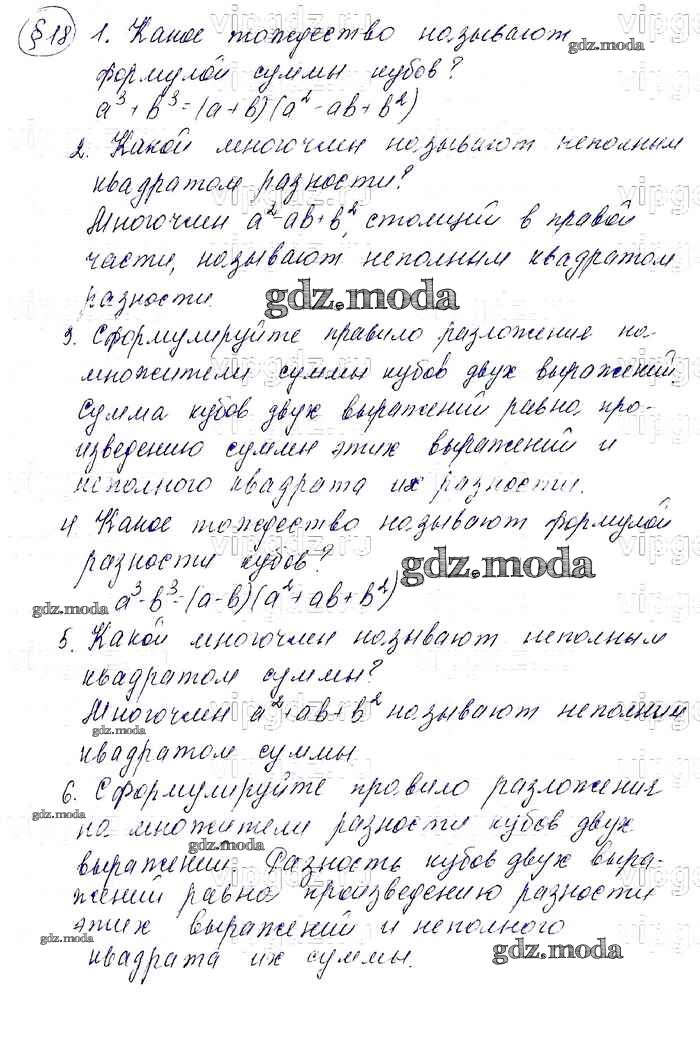 §18 1. Какое тождество называют
формулой суммы кубов?
a³ + b³ = (a + b)(a² - ab + b²)
2. Какой многочлен называют неполным
квадратом разности?
Многочлен a² - ab + b², стоящий в правой
части, называют неполным квадратом
разности.
gdz.moda
3. Сформулируйте правило разложения на
множители суммы кубов двух выражений
Сумма кубов двух выражений равна про-
изведению суммы этих выражений и
неполного квадрата их разности.
4 Какое тождество называют формулой
разности кубов?
gdz.moda
a³ - b³ = (a - b)(a² + ab + b²)
gdz.moda
5. Какой многочлен называют неполным
квадратом суммы?
Многочлен a² + ab + b² называют неполным
gdz.moda
квадратом суммы.
6. Сформулируйте правило разложения
gdz.moda
на множители разности кубов двух
gdz.moda
выражений. Разность кубов двух выра-
жений равна произведению разности
этих выражений и неполного
gdz.moda
gdz.moda
квадрата их суммы.